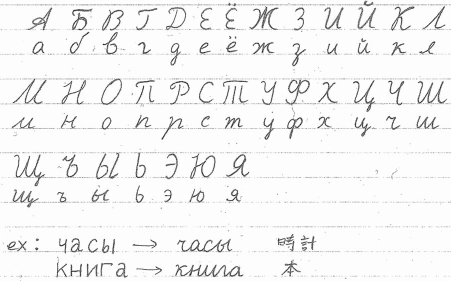 А Б В Г Д Е Ё Ж З И Й К Л
а б в г д е ё ж з и й к л
М Н О П Р С Т У Ф Х Ц Ч Ш
м н о п р с т у ф х ц ч ш
Щ Ъ Ы Ь Э Ю Я
щ ъ ы ь э ю я
ex: часы → часы 時計
книга → книга 本